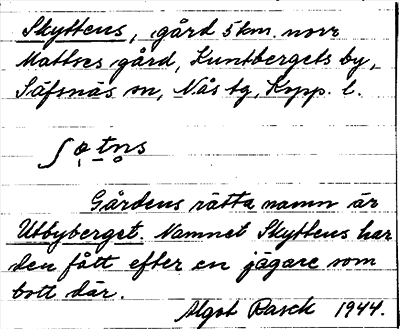 Skyttens, gård 5 km. norr
Mattses gård, Kuntbergets by,
Säfsnäs sn, Nås tg, Kopp. l.
ʃọtn̥s
Gårdens rätta namn är
Utbyberget. Namnet Skyttens har
den fått efter en jägare som
bott där.
Algot Rasck 1944.